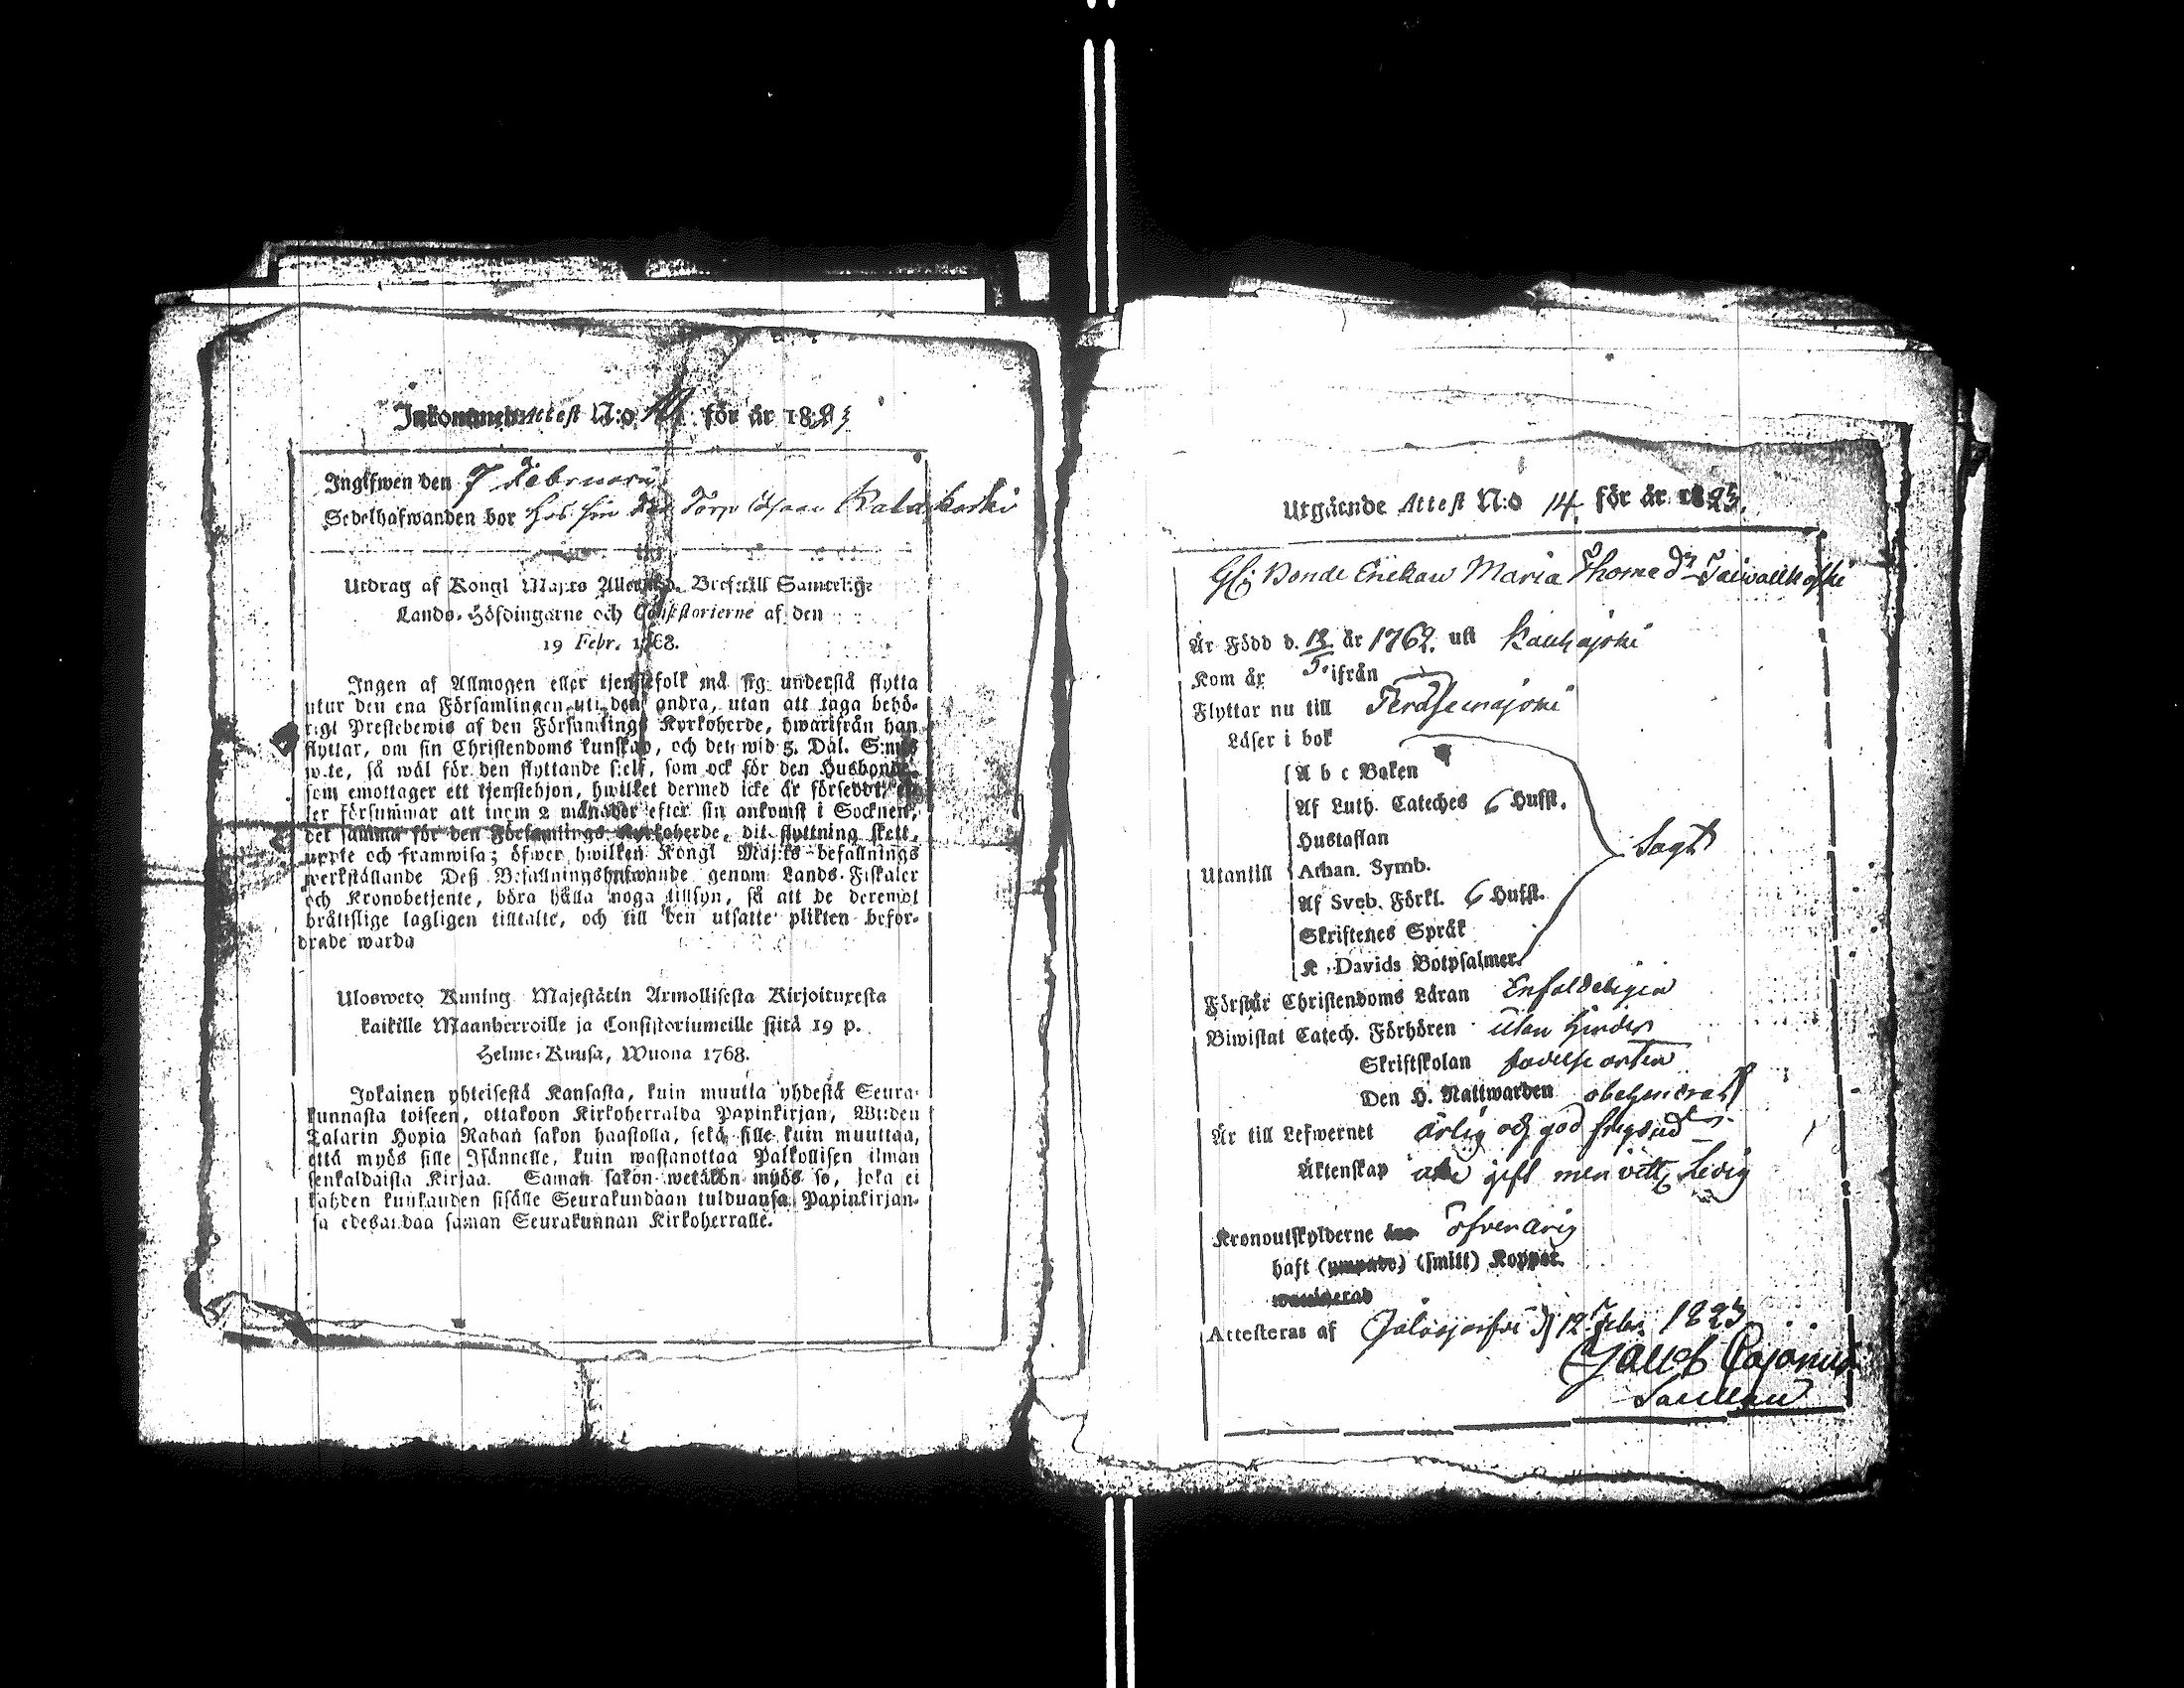 Inkommen Attest N:o för år 1823
Inglfwen den 7 Februari
Sedelhafwanden bor hos sin Torp Kalakoski
Utdrag af Kongl Maj:ts Allernåd. Bref till Samtelige
Lands-Höfdingarne och Consistorierne af den
19 Febr. 1768.
Ingen af Allmogen eller tjenstefolk må sig understå flytta
utur den ena Församlingen uti den andra, utan att taga behö-
rigt Prestebewis af den Församlings Kyrkoherde, hwarifrån han
flyttar, om sin Christendoms kunskap, och det wid 3. Dal. S:mts
wite, så wäl för den flyttande sielf, som ock för den Husbonde
som emottager ett tjenstehjon, hwilket dermed icke är försedt, el-
ler försummar att inom 2 månader efter sin ankomst i Socknen,
det samma för den Församlings Kyrkoherde, dit flyttning skett,
uppte och framwisa; öfwer hwilken Kongl Maj:ts befallnings
werkställande Deß Befallningshafwande genom Lands-Fiskaler
och Kronobetjente, böra hålla noga tillsyn, så att de deremot
bråttslige lagligen tilltalte, och till den utsatte plikten befor-
drade warda
Uloswetö Kuning Majestätin Armollisesta Kirjoituxesta
kaikille Maanherroille ja Consistoriumeille siitä 19 p.
Helme-Kuusa, Wuona 1768.
Jokainen yhteisestä Kansasta, kuin muutta yhdestä Seura-
kunnasta toiseen, ottakoon Kirkoherralda Papinkirjan, Wiiden
Talarin Hopia Rahan sakon haastolla, sekä sille kuin muuttaa,
että myös sille Isännelle, kuin wastanottaa Palkollisen ilman
senkaldaista Kirjaa. Saman sakon wetäkön myös se, joka ei
kahden kuukauden sisälle Seurakundaan tulduansa Papinkirjan-
sa edesandaa saman Seurakunnan Kirkoherralle.
Utgående Attest N:o 14 för år 1823.
Bonde Enckan Maria Thomae Dr Taivallkoski
Är Född d. 12/5 år 1762. uti Kauhajoki
Kom år ifrån
Flyttar nu till Peräseinäjoki
Läser i bok
A b c Boken
Af Luth. Cateches 6 Hufst.
Hustaflan
Utantill Athan. Symb. Sagt
Af Sveb. Förkl. 6 Hufst.
Skriftenes Språk
K. Davids Botpsalmer
Förstår Christendoms Läran Enfaldeligen
Biwistat Catech. Förhören utan hinder
Skriftskolan födelse orten
Den H. Nattwarden obehindrat
Är till Lefwernet ärlig och god
Äktenskap gift men ledig
Kronoutskylderne öfverårig
haft (smitt) Koppor
Attesteras af Jalasjärvi d. 12 Febr. 1823
Jacob Cajanus